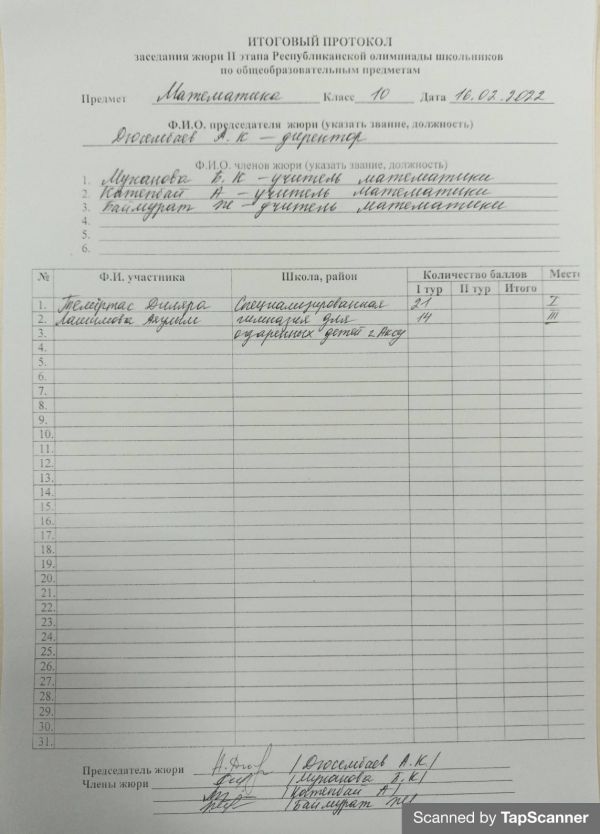 ИТОГОВЫЙ ПРОТОКОЛ
заседания жюри II этапа Республиканской олимпиады школьников
по общеобразовательным предметам
Предмет Математика Класс 10 Дата 16.02.2022
Ф.И.О. председателя жюри (указать звание, должность)
Дюсембаев А.К – директор
Ф.И.О. членов жюри (указать звание, должность)
1. Муканова Б.К – учитель математики
2. Котенбай А – учитель математики
3. Баймурат Ж – учитель математики
4.
5.
6.
№ Ф.И. участника Школа, район Количество баллов Место
I тур II тур Итого
1. Темиртас Диляра Специализированная 21 I
2. Лашимова Аяулым гимназия для 14 III
3. одаренных детей г. Аксу
4.
5.
6.
7.
8.
9.
10.
11.
12.
13.
14.
15.
16.
17.
18.
19.
20.
21.
22.
23.
24.
25.
26.
27.
28.
29.
30.
31.
Председатель жюри /Дюсембаев А.К/
Члены жюри /Муканова Б.К/
/Котенбай А/
/Баймурат Ж/
Scanned by TapScanner